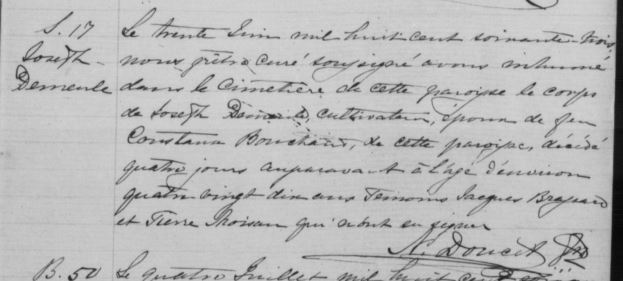 S. 17
Joseph
Demeule
Le trente Juin mil huit cent soixante-trois,
nous prêtre curé soussigné avons inhumé
dans le cimetière de cette paroisse le corps
de Joseph Demeule, cultivateur, époux de feu
Constance Bouchard, de cette paroisse, décédé
quatre jours auparavant à l'âge d'environ
quatre vingt dix ans Temoins Jacques Brassard
et Pierre qui n'ont su signer
N. Doucet Ptre
B. 50
Le quatre Juillet mil huit cent